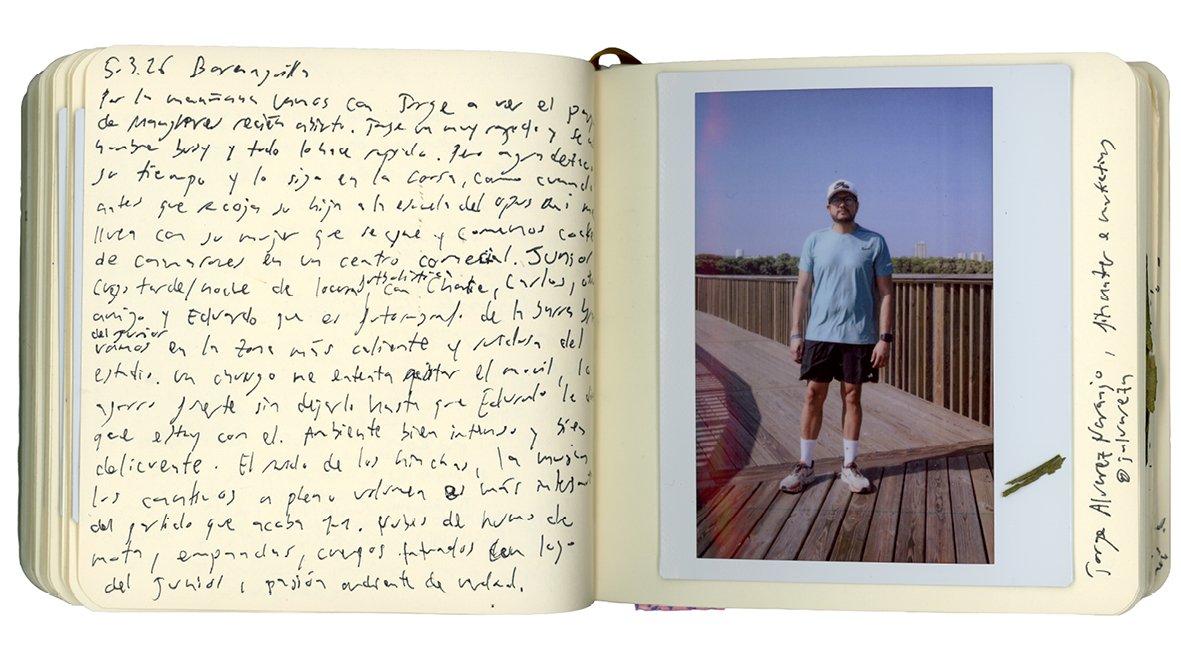 5.3.26 Barranquilla
Por la mañana vamos con Jorge a ver el
de Manglares recién abierto. Jorge va muy rapido y
hombre busy y todo lo hace rapido. Pero agradezco
su tiempo y lo sigo en la corsa, como cuando
antes que recoja su hija a la escuela del opus dei me
lleva con su mujer que se y comemos
de camarones en un centro comercial. Junior
tarde/noche de locura futbolistica con Charlie, Carlos, otro
amigo y Eduardo que es fotografo de la barra
del junior
vamos en la zona más caliente y ruidosa del
estadio. Un me intenta quitar el movil, lo
agarro fuerte sin dejarlo hasta que Eduardo le
que estoy con el. Ambiente bien intenso y bien
delicuente. El ruido de los hinchas, la
los canticos a pleno volumen es más
del partido que acaba Nubes de humo de
mota, empanadas, tatuados con logo
del Junior, pasión ardiente de verdad.
Jorge Alvarez Naranjo, e marketing
@jalvarezn